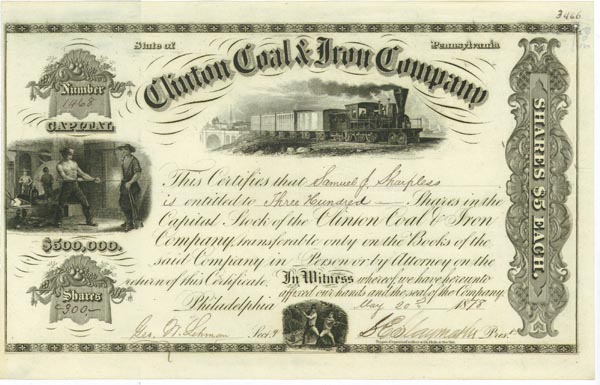 3466
State of Pennsylvania
Clinton Coal & Iron Company
Number
1468
CAPITAL
$500,000.
Shares
300
SHARES $5 EACH.
This Certifies that Samuel J. Sharpless
is entitled to Three Hundred Shares in the
Capital Stock of the Clinton Coal & Iron
Company, transferable only on the Books of the
said Company in Person or by Attorney on the
return of this Certificate. In Witness whereof, we have hereunto
affixed our hands and the seal of the Company.
Philadelphia May 20 1878
Geo. W. Sec.y Pres.t